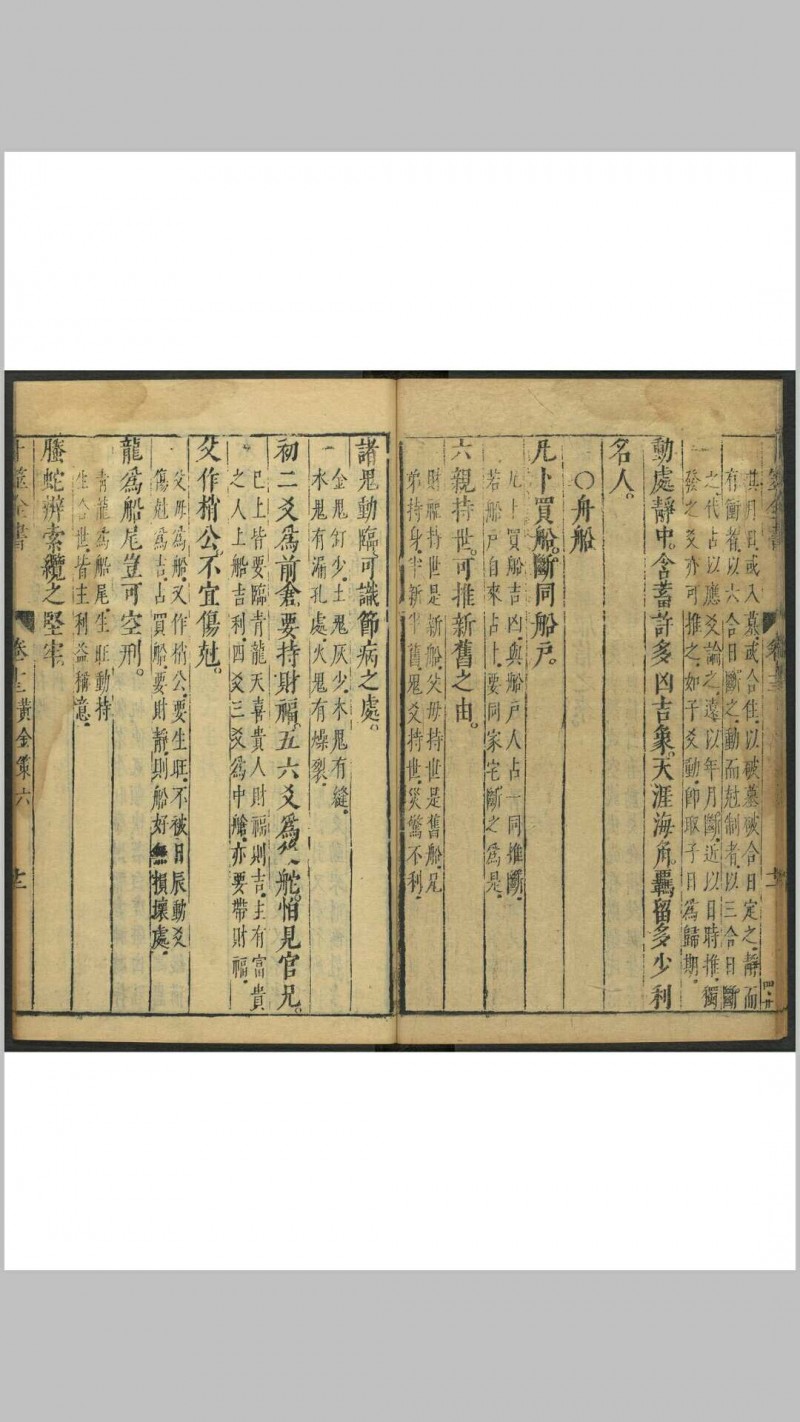 其月日或入墓或合住以破墓破合日定之靜而
有衝者以六合日斷之動而尅制者以三合日斷
之代占以應爻論之遠以年月斷近以日時推獨
發之爻亦可推之如子爻動卽取子日爲歸期
動處靜中含蓄許多凶吉象天涯海角羈留多少利
名人。
〇舟船
凡卜買船斷同船戶。
凡卜買船吉凶與船戶人占一同推斷
若船戶自來占卜要同家宅斷之爲是
六親持世可推新舊之由。
財福持世是新船父母持世是舊船兄
弟持身半新半舊鬼爻持世災驚不利
諸鬼動臨可識節病之處。
金鬼釘少土鬼灰少木鬼有縫
水鬼有漏孔處火鬼有燥裂
初二爻爲前倉要持財福五六爻爲 舵怕見官兄。
已上皆要臨青龍天喜貴人財福則吉主有富貴
之人上船吉利四爻三爻爲中艙亦要帶財福
父作梢公不宜傷尅。
父母爲船又作梢公要生旺不被日辰動爻
傷尅爲吉占買船要財靜則船好無損壞處
龍爲船尾豈可空刑。
青龍爲船尾生旺動持
生合世皆主利益稱意
螣蛇辨索纜之堅牢
卜筮全書 卷十三 黃金策六 十二